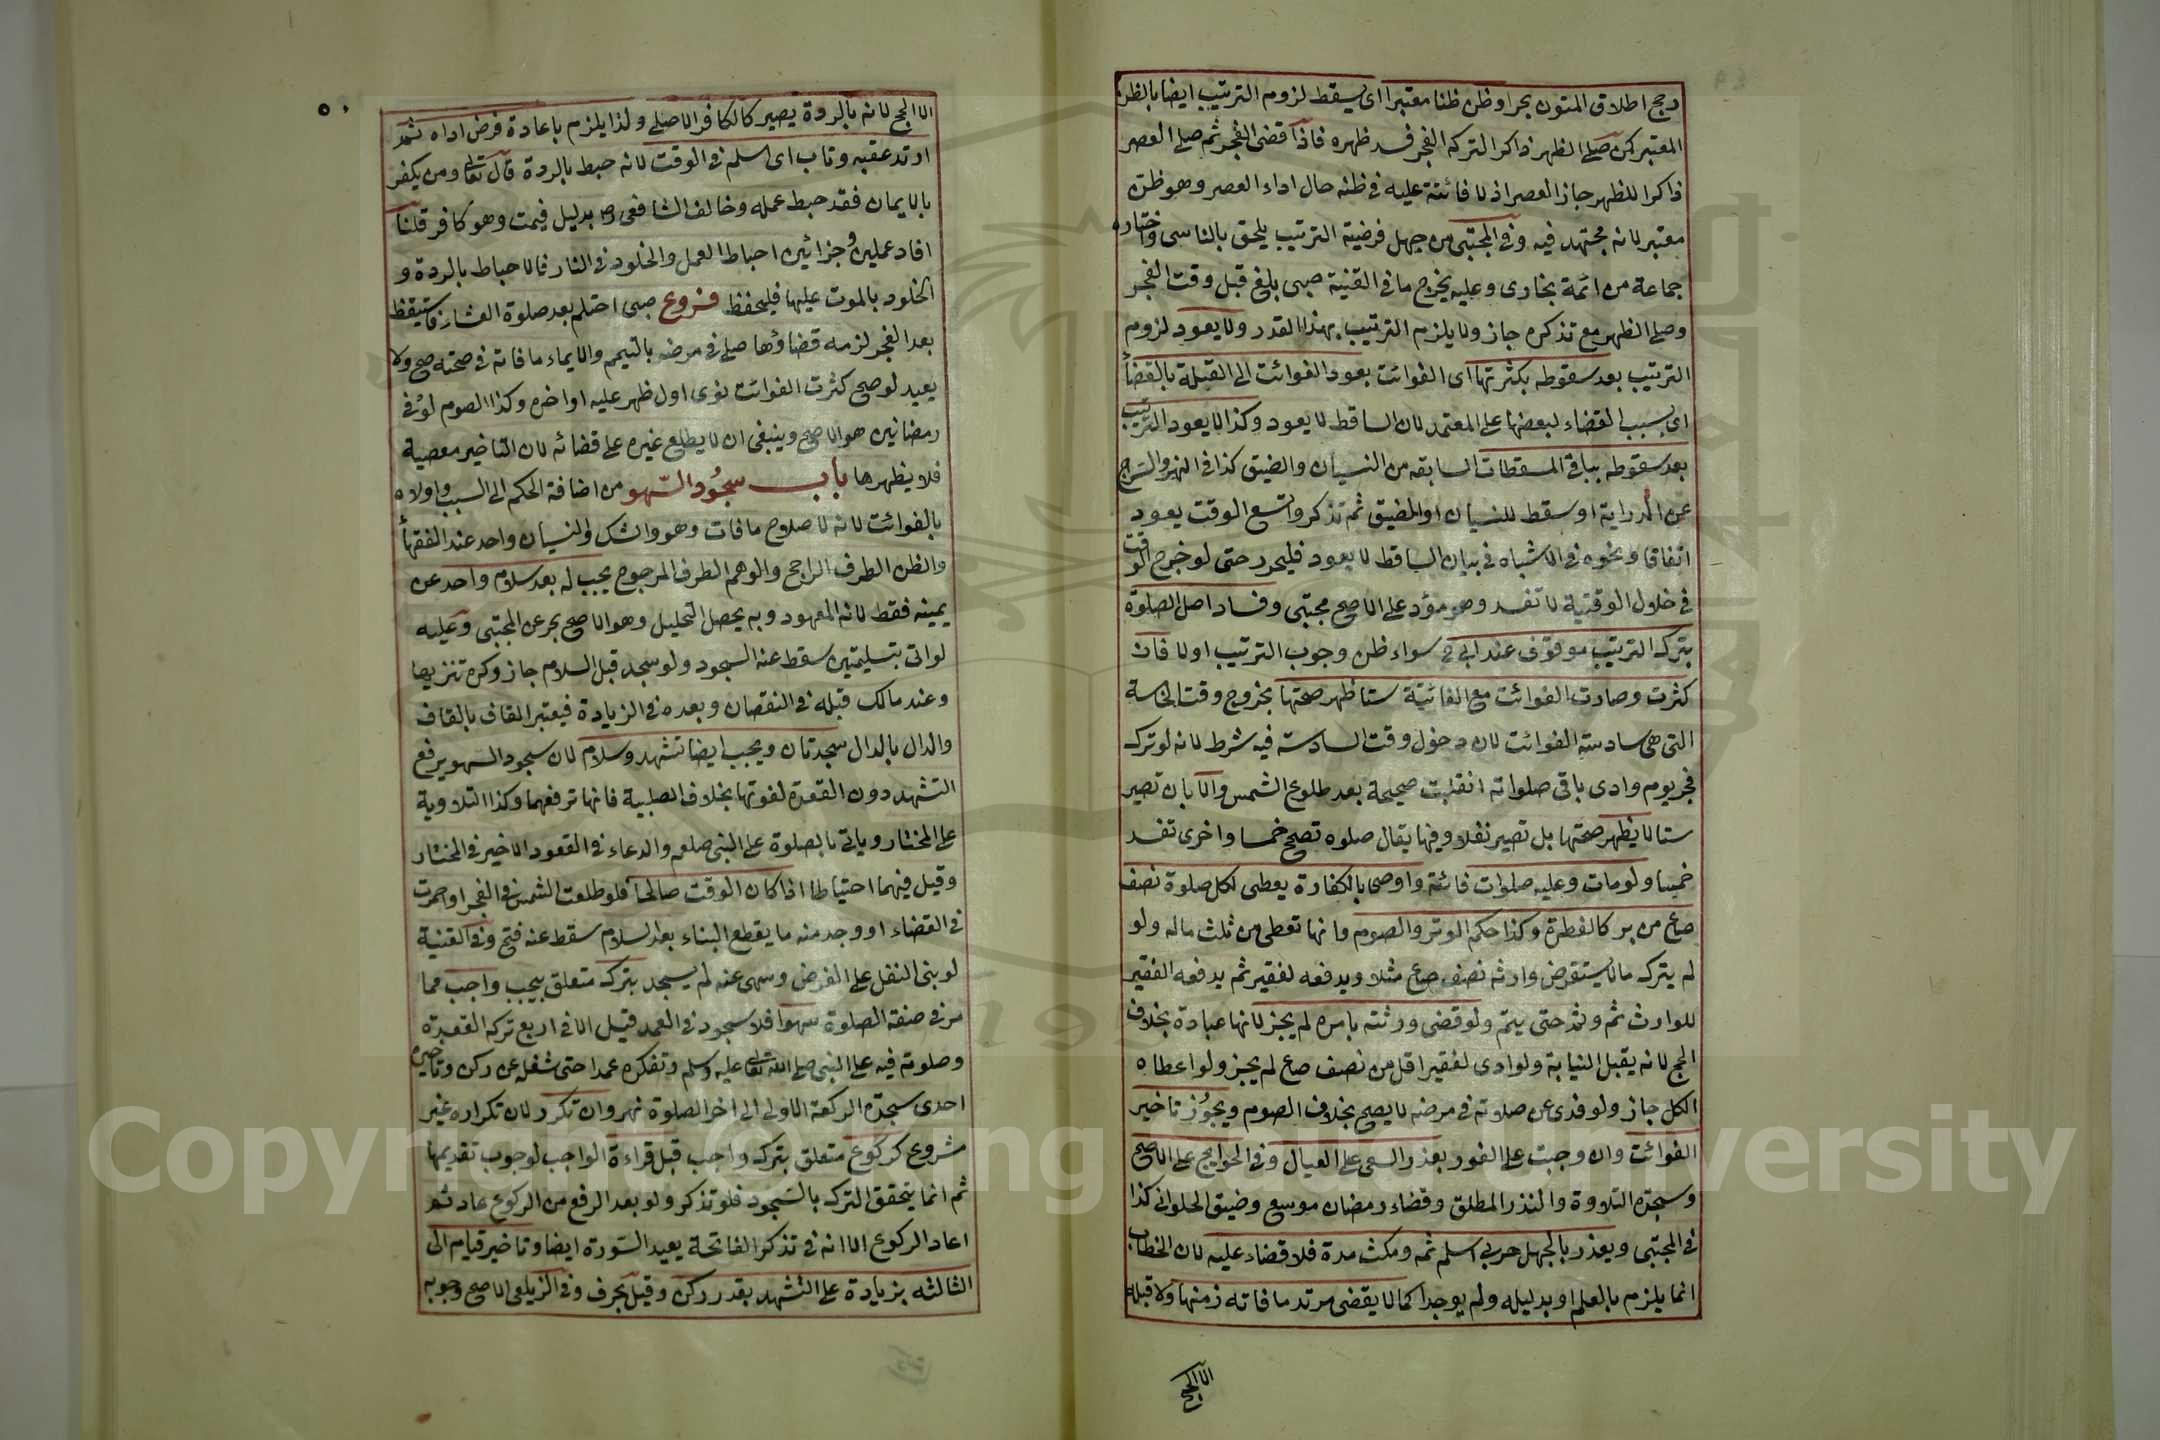 رجح اطلاق المتون بحر او ظن ظنا معتبرا اى يسقط لزوم الترتيب ايضا بالظن
المعتبر كمن صلى الظهر ذاكرا لتركه الفجر فسد ظهره فاذا قضى الفجر ثم صلى العصر
ذاكرا للظهر جاز العصر اذ لا فائتة عليه فى ظنه حال اداء العصر وهو ظن
معتبر لانه مجتهد فيه وفى المجتبى من جهل فرضية الترتيب يلحق بالناسى واختاره
جماعة من ائمة بخارى وعليه يخرج ما فى القنية صبى بلغ قبل وقت الفجر
وصلى الظهر مع تذكره جاز ولا يلزم الترتيب بهذا القدر ولا يعود لزوم
الترتيب بعد سقوطه بكثرتها اى الفوائت بعود الفوائت الى القلة بالقضأ
اى بسبب القضاء لبعضها على المعتمد لان الساقط لا يعود وكذا لا يعود الترتيب
بعد سقوطه بباقى المسقطات السابقه من النسيان والضيق كذا فى النهر والسراج
عن الدراية او سقط للنسيان او للضيق ثم تذكر واتسع الوقت يعود
اتفاقا ونحوه فى الاشباه فى بيان الساقط لا يعود فليحرر حتى لو خرج الوقت
فى خلول الوقتية لا تفسد وهو مؤد على الاصح مجتبى وفساد اصل الصلوة
بترك الترتيب موقوف عند ابى ح سواء ظن وجوب الترتيب او لا فان
كثرت وصارت الفوائت مع الفائتة ستا ظهر صحتها بخروج وقت الخامسة
التى هى سادسة الفوائت لان دخول وقت السادسة فيه شرط لانه لو ترك
فجر يوم وادى باقى صلواته انقلبت صحيحة بعد طلوع الشمس والا بان تصير
ستا لا يظهر صحتها بل تصير نفلا وفيها يقال صلوه تصحح خمسا واخرى تفسد
خمسا ولو مات وعليه صلوات فائتة واوصى بالكفارة يعطى لكل صلوة نصف
صاع من بر كالفطرة وكذا حكم الوتر والصوم وانها تعطى من ثلث ماله ولو
لم يترك مالا يستقرض وارثه نصف صاع مثلا ويدفعه لفقير ثم يدفعه الفقير
للوارث ثم وثم حتى يتم ولو قضى ورثته بامره لم يجز لانها عبادة بخلاف
الحج لانه يقبل النيابة ولو ادى لفقير اقل من نصف صع لم يجز ولو اعطاه
الكل جاز ولو فدى عن صلوته فى مرضه لا يصح بخلاف الصوم ويجوز تاخير
الفوائت وان وجبت على الفور بعذر السعى على العيال وفى الحوايج على الاصح
وسجدة التلاوة والنذر المطلق وقضاء رمضان موسع وضيق الحلوانى كذا
فى المجتبى ويعذر بالجهل حربى اسلم ثمه ومكث مدة فلا قضاء عليه لان الخطاب
انما يلزم بالعلم او بدليله ولم يوجدا كما لا يقضى مرتد ما فاته زمنها ولا قبلها
الا الحج
٥٠
الا الحج لانه بالردة يصير كالكافر الاصلى ولذا يلزم باعادة فرض اداه ثم
ارتد عقبه وتاب اى اسلم فى الوقت لانه حبط بالردة قال تعالى ومن يكفر
بالايمان فقد حبط عمله وخالف الشافعى رح بدليل فيمت وهو كافر قلنا
افاد عملين وجزائين احباط العمل والخلود فى النار فالاحباط بالردة و
الخلود بالموت عليها فليحفظ فروع صبى احتلم بعد صلوة العشاء فاستيقظ
بعد الفجر لزمه قضاؤها صلى فى مرضه بالتيمم والايماء ما فاته فى صحته صح ولا
يعيد لو صح كثرت الفوائت نوى اول ظهر عليه او اخره وكذا الصوم لو فى
رمضانين هو الاصح وينبغى ان لا يطلع غيره على قضائه لان التاخير معصية
فلا يظهرها باب سجود السهو من اضافة الحكم الى السبب واولاه
بالفوائت لانه لاصلاح ما فات وهو والشك والنسيان واحد عند الفقهأ
والظن الطرف الراجح والوهم الطرف المرجوح يجب له بعد سلام واحد عن
يمينه فقط لانه المعهود وبه يحصل التحليل وهو الاصح بحر عن المجتبى وعليه
لو اتى بتسليمتين سقط عنه السجود ولو سجد قبل السلام جاز وكره تنزيها
وعند مالك قبله فى النقصان وبعده فى الزيادة فيعتبر القاف بالقاف
والدال بالدال سجدتان ويجب ايضا تشهد وسلام لان سجود السهو يرفع
التشهد دون القعدة لقوتها بخلاف الصلبية فانها ترفعهما وكذا التلاوية
على المختار وياتى بالصلوة على النبى صلعم والدعاء فى القعود الاخير فى المختار
وقيل فيهما احتياطا اذا كان الوقت صالحا فلو طلعت الشمس فى الفجر او احمرت
فى القضاء او وجد منه ما يقطع البناء بعد السلام سقط عنه فتح وفى القنية
لو بنى النفل على الفرض وسهى عنه لم يسجد بترك متعلق بيجب واجب مما
مر فى صفة الصلوة سهوا فلا سجود فى العمد قيل الا فى اربع ترك القعدة
وصلوته فيه على النبى صلى الله تعالى عليه وسلم وتفكره عمدا حتى شغله عن ركن وتاخيره
احدى سجدة الركعة الاولى الى اخر الصلوة نهر وان تكرر لان تكراره غير
مشروع كركوع متعلق بترك واجب قبل قراءة الواجب لوجوب تقديمها
ثم انما يتحقق الترك بالسجود فلو تذكر ولو بعد الرفع من الركوع عاد ثم
اعاد الركوع الا انه فى تذكر الفاتحة يعيد السورة ايضا وتاخير قيام الى
الثالثه بزيادة على التشهد بقدر ركن وقيل بحرف وفى الزيلعى الاصح وجوبه
Copyright © King Saud University